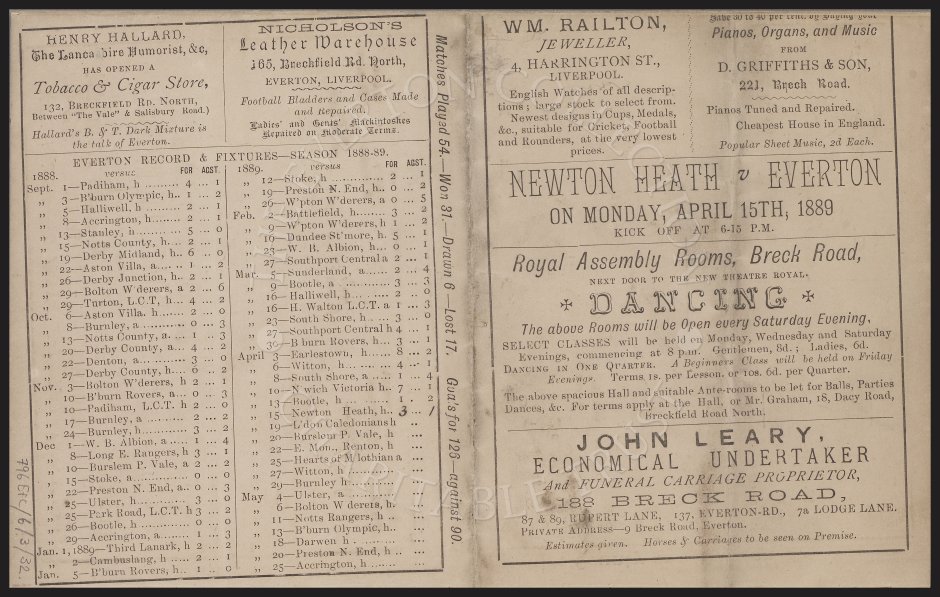 HENRY HALLARD,
The Lancashire Humorist, &c,
HAS OPENED A
Tobacco & Cigar Store,
132, BRECKFIELD RD. NORTH,
Between "The Vale" & Salisbury Road.)
Hallard's B. & T. Dark Mixture is
the talk of Everton.
NICHOLSON'S
Leather Warehouse
165, Breckfield Rd. North,
EVERTON, LIVERPOOL.
Football Bladders and Cases Made
and Repaired.
Ladies' and Gents' Mackintoshes
Repaired on Moderate Terms.
EVERTON RECORD & FIXTURES—SEASON 1888-89.
1888. versus FOR AGST.
Sept. 1—Padiham, h ... 4 ... 1
„ 3—B'burn Olympic, h.. 1 ... 2
„ 5—Halliwell, h ... 2 ... 1
„ 8—Accrington, h ... 2 ... 1
„ 13—Stanley, h ... 5 ... 0
„ 15—Notts County, h... 2 ... 1
„ 19—Derby Midland, h.. 6 ... 0
„ 22—Aston Villa, a ... 1 ... 2
„ 26—Derby Junction, h.. 2 ... 1
„ 29—Bolton W'derers, a 2 ... 6
„ 29—Turton, L.C.T., h... 4 ... 2
Oct. 6—Aston Villa, h ... 2 ... 0
„ 8—Burnley, a ... 0 ... 3
„ 13—Notts County, a... 1 ... 3
„ 20—Derby County, a... 4 ... 2
„ 22—Denton, a ... 3 ... 0
„ 27—Derby County, h... 6 ... 2
Nov. 3—Bolton W'derers, h 2 ... 1
„ 10—B'burn Rovers, a... 0 ... 3
„ 10—Padiham, L.C.T. h 2 ... 0
„ 17—Burnley, a ... 2 ... 2
„ 24—Burnley, h ... 3 ... 2
Dec 1—W. B. Albion, a ... 1 ... 4
„ 8—Long E. Rangers, h 3 ... 1
„ 10—Burslem P. Vale, a 2 ... 2
„ 15—Stoke, a ... 0 ... 0
„ 22—Preston N. End, a.. 0 ... 3
„ 25—Ulster, h ... 3 ... 0
„ 25—Park Road, L.C.T. h 3 ... 2
„ 26—Bootle, h ... 0 ... 0
„ 29—Accrington, a ... 1 ... 3
Jan. 1, 1889—Third Lanark, h 2 ... 2
„ 2—Cambuslang, h ... 2 ... 1
Jan. 5—B'burn Rovers, h.. 1 .. 0
1889. versus FOR AGST.
„ 12—Stoke, h ... 2 ... 1
„ 19—Preston N. End, h.. 0 ... 2
„ 26—W'pton W'derers, a 0 ... 5
Feb. 2—Battlefield, h ... 3 ... 2
„ 9—W'pton W'derers, h 1 ... 2
„ 19—Dundee St'more, h. 5 ... 1
„ 23—W. B. Albion, h... 0 ... 1
„ 27—Southport Central a 2 ... 1
Mar. 5—Sunderland, a ... 2 ... 4
„ 9—Bootle, a ... 3 ... 3
„ 16—Halliwell, h ... 2 .. 0
„ 16—H. Walton L.C.T. a 1 ... 3
„ 23—South Shore, h ... 3 ... 0
„ 27—Southport Central h 4 ... 1
„ 30—B'burn Rovers, h ... 3 ... 1
April 3—Earlestown, h ... 8 ... 2
„ 6—Witton, h ... 4 ... 1
„ 8—South Shore, a ... 1 ... 4
„ 10—N'wich Victoria h.. 7 ... 1
„ 13—Bootle, h ... 1 . 2
„ 15—Newton Heath, h.. 3 ... 1
„ 19—L'don Caledonians h ..
„ 20—Burslem P. Vale, h ...
„ 22—E. Mon., Renton, h ...
„ 25—Hearts of M'lothian a ...
„ 27—Witton, h ...
„ 29—Burnley h ...
May 4—Ulster, a ...
„ 6—Bolton W'derers, h. ...
„ 11—Notts Rangers, h ...
„ 13—B'burn Olympic, h.. ...
„ 18—Darwen h ...
„ 20—Preston N. End, h .. ...
„ 25—Accrington, h ...
Matches Played 54.—Won 31.—Drawn 6—Lost 17. Goals for 126—against 90.
796EFC/6/3/32.
WM. RAILTON,
JEWELLER,
4, HARRINGTON ST.,
LIVERPOOL.
English Watches of all descrip-
tions; large stock to select from.
Newest designs in Cups, Medals,
&c., suitable for Cricket, Football
and Rounders, at the very lowest
prices.
Save 30 to 40 per cent. by buying your
Pianos, Organs, and Music
FROM
D. GRIFFITHS & SON,
221, Breck Road.
Pianos Tuned and Repaired.
Cheapest House in England.
Popular Sheet Music, 2d Each.
NEWTON HEATH v EVERTON
ON MONDAY, APRIL 15TH, 1889
KICK OFF AT 6-15 P.M.
Royal Assembly Rooms, Breck Road,
NEXT DOOR TO THE NEW THEATRE ROYAL.
DANCING
The above Rooms will be Open every Saturday Evening,
SELECT CLASSES will be held on Monday, Wednesday and Saturday
Evenings, commencing at 8 p.m. Gentlemen, 8d.; Ladies, 6d.
DANCING IN ONE QUARTER. A Beginners Class will be held on Friday
Evenings. Terms 1s. per Lesson, or 10s. 6d. per Quarter.
The above spacious Hall and suitable Ante-rooms to be let for Balls, Parties
Dances, &c. For terms apply at the Hall, or Mr. Graham, 18, Dacy Road,
Breckfield Road North.
JOHN LEARY,
ECONOMICAL UNDERTAKER
And FUNERAL CARRIAGE PROPRIETOR,
188 BRECK ROAD,
87 & 89, RUPERT LANE, 137, EVERTON-RD., 7a LODGE LANE.
PRIVATE ADDRESS—9 Breck Road, Everton.
Estimates given. Horses & Carriages to be seen on Premise.